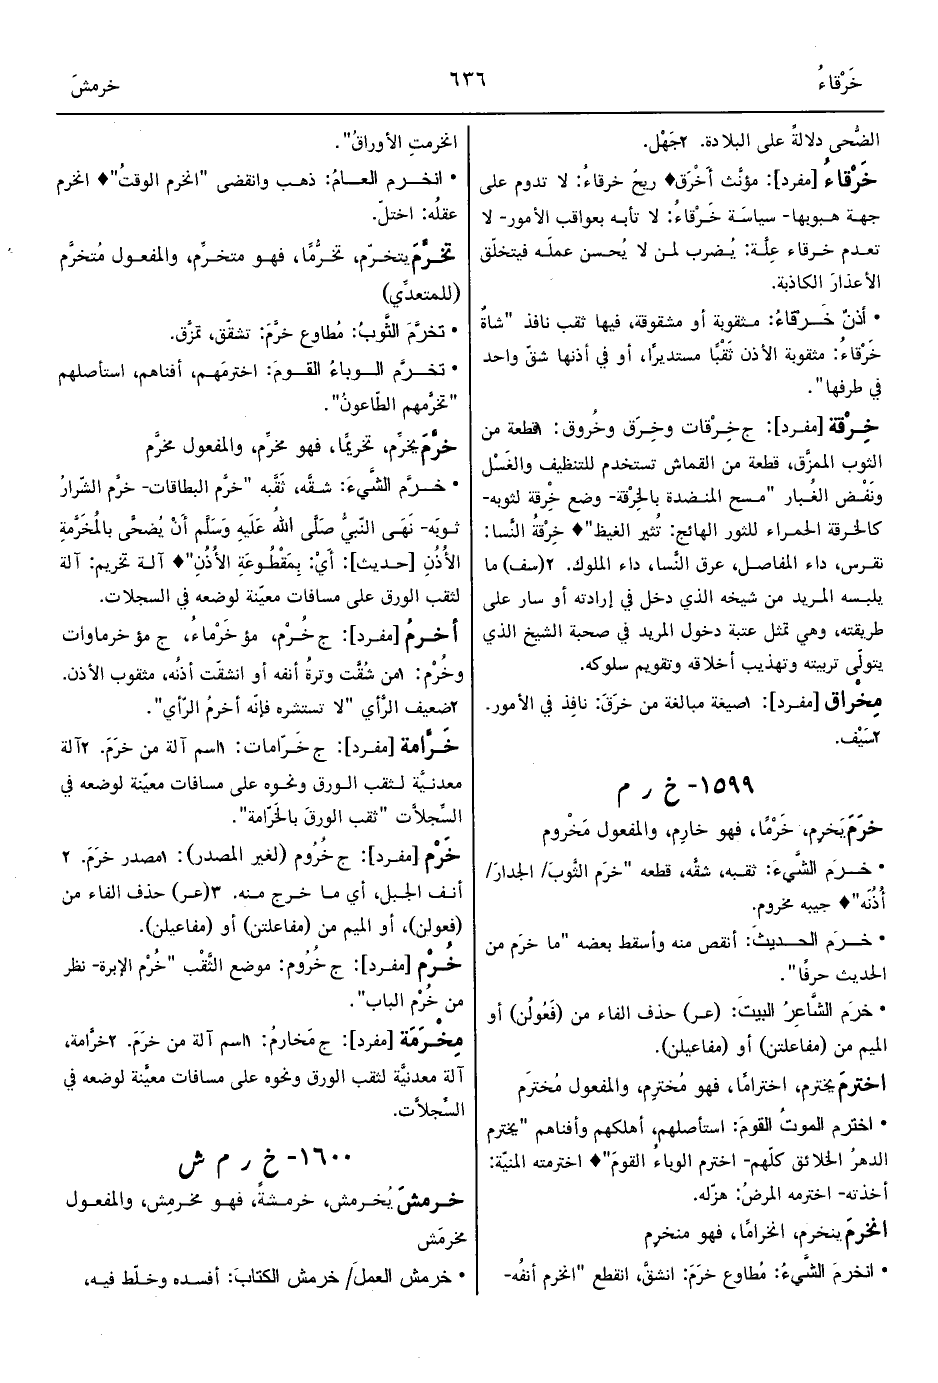 خَرْقاءُ
٦٣٦
خرمشَ
الضُّحى دلالةً على البلادة. ٢جَهْل.
خَرْقاءُ [مفرد]: مؤنَّث أخْرَق♦ ريحٌ خرقاءُ: لا تدوم على
جهة هبوبها- سياسَة خَرْقاءُ: لا تأبه بعواقب الأمور- لا
تعدم خرقاء عِلَّة: يُضرب لمن لا يُحسن عملَه فيتخلَّق
الأعذارَ الكاذبة.
• أذنٌ خَرْقاءُ: مثقوبة أو مشقوقة، فيها ثقب نافذ "شاةٌ
خَرْقاءُ: مثقوبة الأذن ثَقْبًا مستديرًا، أو في أذنها شقّ واحد
في طرفها".
خِرْقة [مفرد]: ج خِرْقات وخِرَق وخُروق: ١قطعة من
الثوب الممزَّق، قطعة من القماش تستخدم للتنظيف والغَسْل
ونَفْض الغُبار "مسح المنضدة بالخِرْقة- وضع خِرْقة لثوبه-
كالخرقة الحمراء للثور الهائج: تُثير الغيظ"♦ خِرْقةُ النَّسا:
نقرس، داء المفاصل، عرق النَّسا، داء الملوك. ٢(سف) ما
يلبسه المريد من شيخه الذي دخل في إرادته أو سار على
طريقته، وهي تمثل عتبة دخول المريد في صحبة الشيخ الذي
يتولّى تربيته وتهذيب أخلاقه وتقويم سلوكه.
مِخْراق [مفرد]: ١صيغة مبالغة من خرَقَ: نافِذ في الأمور.
٢سَيْف.
١٥٩٩- خ ر م
خرَمَ يَخرِم، خَرْمًا، فهو خارِم، والمفعول مَخْروم
• خرَم الشَّيءَ: ثقبه، شقَّه، قطعه "خرَم الثَّوبَ/ الجدارَ/
أُذُنَه"♦ جيبه مخروم.
• خرَم الحديثَ: أنقص منه وأسقط بعضه "ما خرَم من
الحديث حرفًا".
• خرَم الشَّاعرُ البيتَ: (عر) حذف الفاء من (فَعُولُن) أو
الميم من (مفاعلتن) أو (مفاعيلن).
اخترمَ يخترم، اخترامًا، فهو مُخترِم، والمفعول مُخترَم
• اخترم الموتُ القومَ: استأصلهم، أهلكهم وأفناهم "يخترم
الدهرُ الخلائق كلّهم- اخترم الوباءُ القومَ"♦ اخترمته المنيّة:
أخذته- اخترمه المرضُ: هزّله.
انخرمَ ينخرم، انخرامًا، فهو منخرِم
• انخرمَ الشَّيءُ: مُطاوع خرَمَ: انشقَّ، انقطع "انخرم أنفُه-
انخرمتِ الأوراقُ".
• انخرم العامُ: ذهب وانقضى "انخرم الوقتُ"♦ انخرم
عقلُه: اختلّ.
تخرَّمَ يتخرّم، تخرُّمًا، فهو متخرِّم، والمفعول مُتخرَّم
(للمتعدِّي)
• تخرَّمَ الثَّوبُ: مُطاوع خرَّمَ: تشقَّق، تمزَّق.
• تخرَّم الوباءُ القومَ: اخترمَهم، أفناهم، استأصلهم
"تخرَّمهم الطّاعونُ".
خرَّمَ يخرِّم، تخريمًا، فهو مخرِّم، والمفعول مخرَّم
• خرَّم الشَّيءَ: شقَّه، ثَقَّبه "خرَّم البطاقات- خرَّم الشَّرارُ
ثوبَه- نَهَى النَّبِيُّ صَلَّى اللهُ عَلَيهِ وَسَلَّم أَنْ يُضحَّى بالمُخَرَّمةِ
الأُذُنِ [حديث]: أيْ: بِمَقْطُوعَةِ الأُذُنِ"♦ آلة تخريم: آلة
لثقب الورق على مسافات معيّنة لوضعه في السجلات.
أخرمُ [مفرد]: ج خُرْم، مؤ خَرْماءُ، ج مؤ خرماوات
وخُرْم: ١من شُقَّت وترةُ أنفه أو انشقّت أذنُه، مثقوب الأذن.
٢ضعيف الرَّأي "لا تستشره فإنّه أخرمُ الرّأي".
خَرَّامة [مفرد]: ج خَرّامات: ١اسم آلة من خرَمَ. ٢آلة
معدنيَّة لثقب الورق ونحوه على مسافات معيّنة لوضعه في
السِّجلاَّت "ثقب الورقَ بالخَرّامة".
خَرْم [مفرد]: ج خُرُوم (لغير المصدر): ١مصدر خرَمَ. ٢
أنف الجبل، أي ما خرج منه. ٣(عر) حذف الفاء من
(فعولن)، أو الميم من (مفاعلتن) أو (مفاعيلن).
خُرْم [مفرد]: ج خُروم: موضع الثَّقْب "خُرْم الإبرة- نظر
من خُرْم الباب".
مِخْرَمَة [مفرد]: ج مَخارمُ: ١اسم آلة من خرَمَ. ٢خرَّامة،
آلة معدنيَّة لثقب الورق ونحوه على مسافات معيَّنة لوضعه في
السِّجلاَّت.
١٦٠٠- خ ر م ش
خرمشَ يُخرمش، خرمشةً، فهو مخرمِش، والمفعول
مخرمَش
• خرمش العملَ/ خرمش الكتابَ: أفسده وخلَّط فيه،